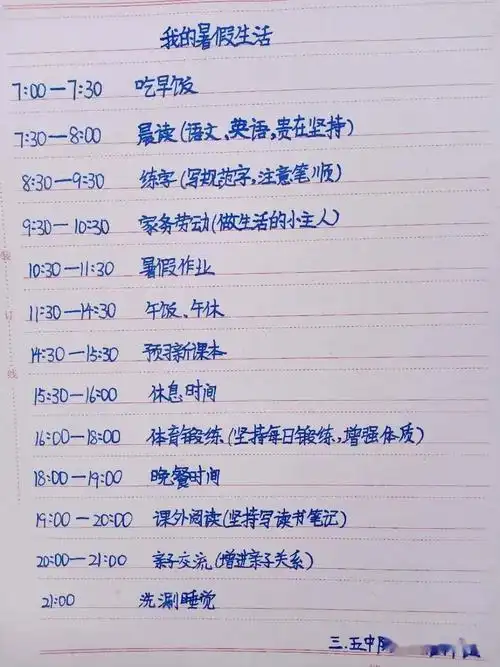 我的暑假生活
7:00—7:30 吃早饭
7:30—8:00 晨读(语文、英语,贵在坚持)
8:30—9:30 练字(写规范字,注意笔顺)
9:30—10:30 家务劳动(做生活的小主人)
10:30—11:30 暑假作业
11:30—14:30 午饭、午休
14:30—15:30 预习新课本
15:30—16:00 休息时间
16:00—18:00 体育锻练(坚持每日锻练,增强体质)
18:00—19:00 晚餐时间
19:00—20:00 课外阅读(坚持写读书笔记)
20:00—21:00 亲子交流(增进亲子关系)
21:00 洗涮睡觉
三.五中队
装
订
线